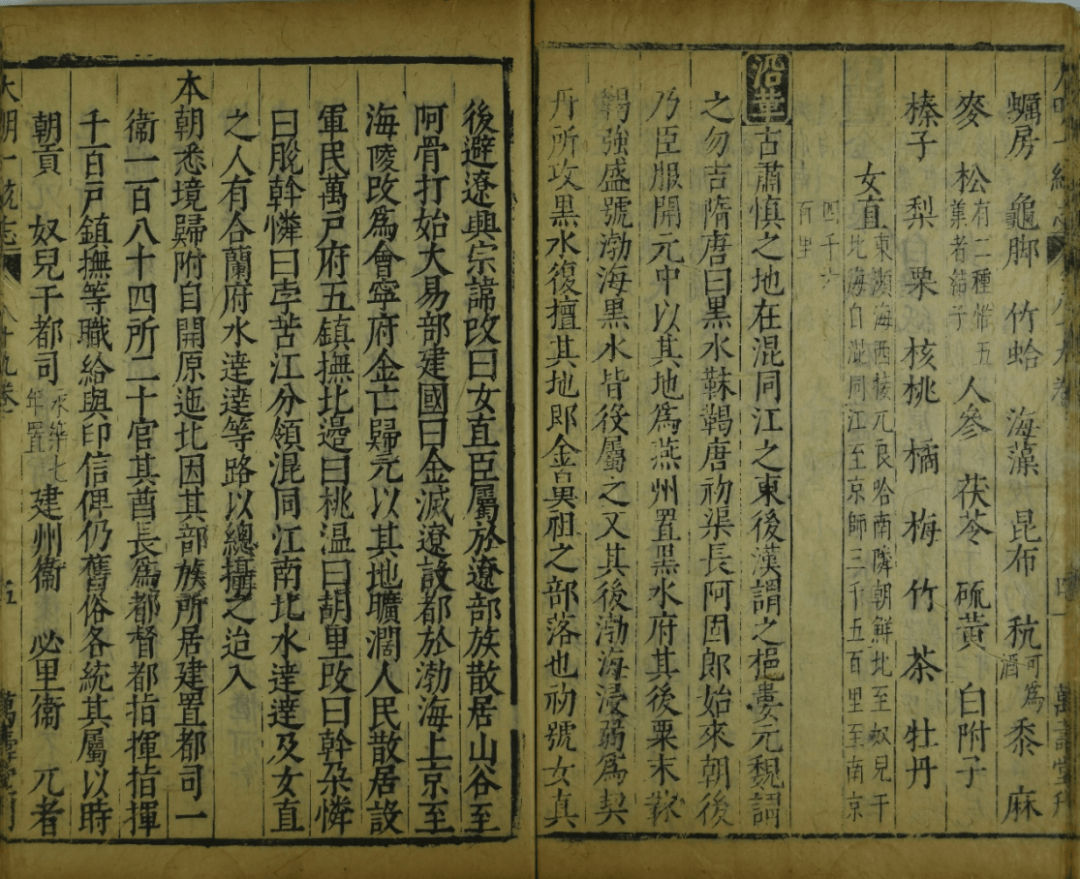 蠣房　龜脚　竹蛤　海藻　昆布　秔可為酒　黍　麻
麥　松有二種惟五葉者結子　人參　茯苓　硫黃　白附子
榛子　梨　栗　核桃　橘　梅　竹　茶　牡丹
女直東瀕海西接兀良哈南隣朝鮮北至奴兒干北海自混同江至京師三千五百里至南京
四千
百里
沿革古肅慎之地在混同江之東後漢謂之挹婁元魏謂
之勿吉隋唐曰黑水靺鞨唐初渠長阿固郎始來朝後
乃臣服開元中以其地為燕州置黑水府其後粟末靺
鞨強盛號渤海黑水皆役屬之又其後渤海浸弱為契
丹所攻黑水復擅其地即金鼻祖之部落也初號女真
後避遼興宗諱改曰女直臣屬於遼部族散居山谷至
阿骨打始大易部建國曰金滅遼設都於渤海上京至
海陵改爲會寧府金亡歸元以其地曠濶人民散居設
軍民萬戶府五鎮撫北邊曰桃温曰胡里改曰斡朶憐
曰脫斡憐曰孛苦江分領混同江南北水達達及女直
之人有合蘭府水達達等路以總攝之迨入
本朝悉境歸附自開原迤北因其部族所居建置都司一
衞一百八十四所二十官其酋長爲都督都指揮指揮
千百戶鎮撫等職給與印信俾仍舊俗各統其屬以時
朝貢　奴兒干都司永樂七年置　建州衞　必里衞　兀者
大明一統志　八十九卷　五　萬壽堂刊